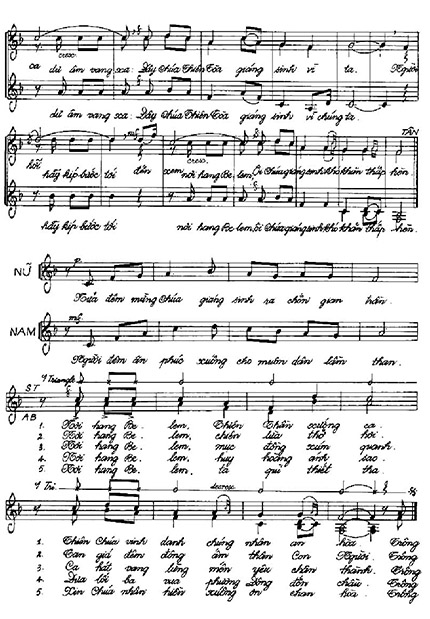 cresc.
ca dư âm vang xa: Đây Chúa Thiên Tòa giáng sinh vì ta. Người
dư âm vang xa: Đây Chúa Thiên Tòa giáng sinh vì chúng ta.
mf TÂN
hỡi
hãy kíp bước tới đến xem nơi hang Be lem, Ôi Chúa giáng sinh khó khăn thấp hèn.
cresc.
hãy kíp bước tới nơi hang Be lem, Ôi Chúa giáng sinh khó khăn thấp hèn.
NỮ p
Nửa đêm mừng Chúa giáng sinh ra chốn gian hàn.
NAM mf
Người đem ân phúc xuống cho muôn dân lầm than.
Triangle
S T
A B
1. Nơi hang Be lem, Thiên Thần xướng ca.
2. Nơi hang Be lem, chiên lừa thở hơi.
3. Nơi hang Be lem, mục đồng xúm quanh.
4. Nơi hang Be lem, huy hoàng ánh sao.
5. Nơi hang Be lem, ta quì thiết tha.
Tri. decresc.
1. Thiên Chúa vinh danh chúng nhân an hòa Trông
2. Tan giá đêm đông ấm thân Con Người. Trông
3. Ca hát vang lừng mến yêu chân thành. Trông
4. Đưa lối ba vua phương Đông đến chầu. Trông
5. Xin Chúa nhân hiền xuống ơn chan hòa. Trông